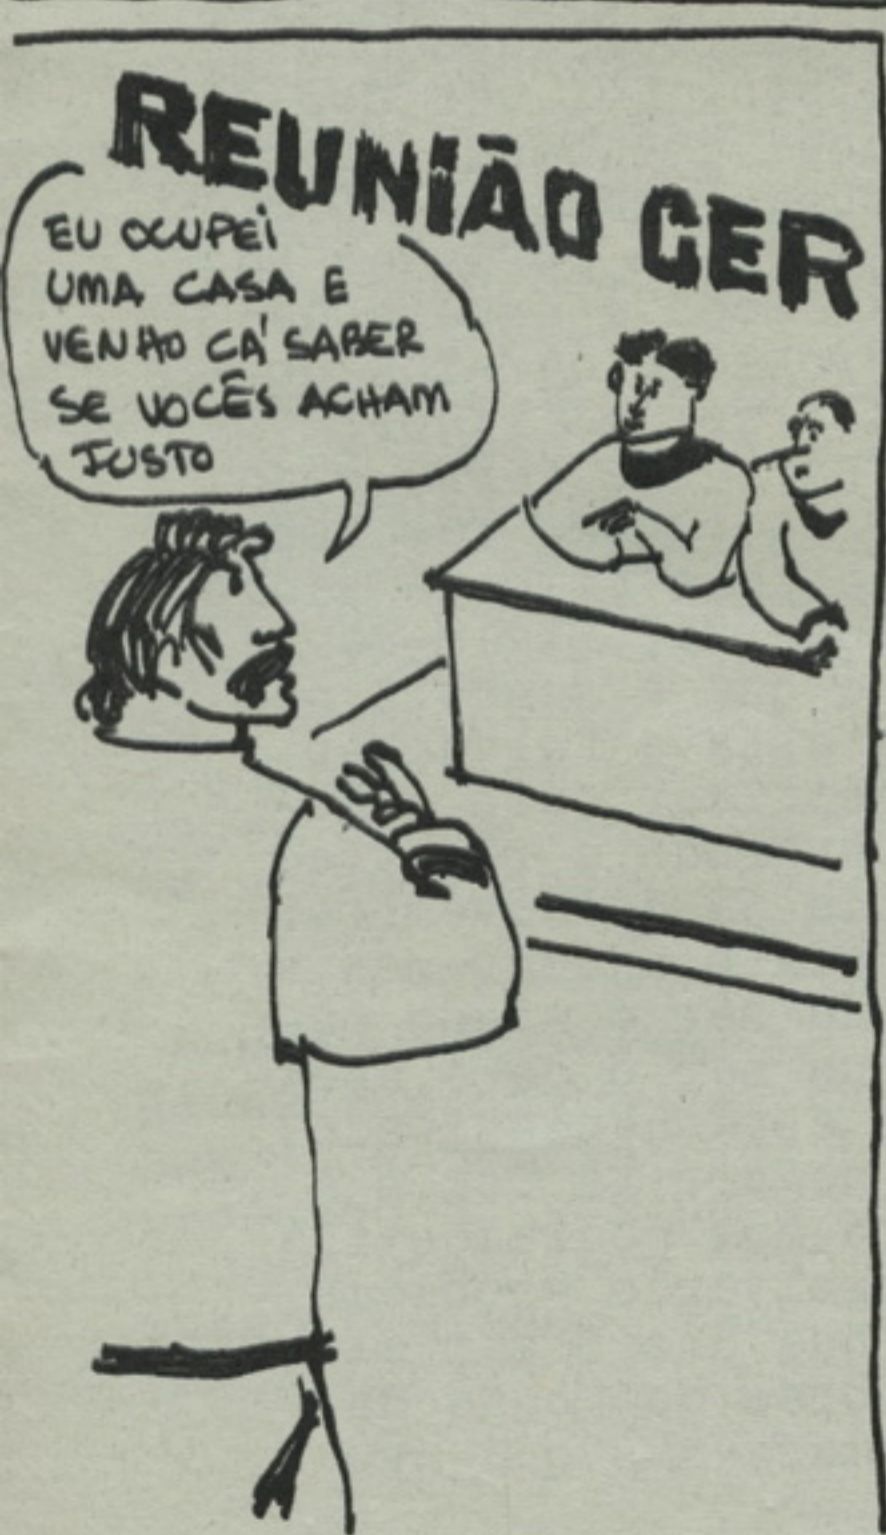 REUNIÃO GER
EU OCUPEI
UMA CASA E
VENHO CÁ SABER
SE VOCÊS ACHAM
JUSTO